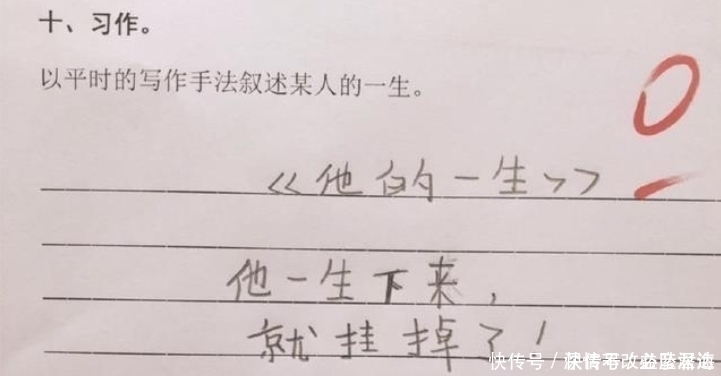 十、习作。
以平时的写作手法叙述某人的一生。
0
《他的一生》
他一生下来，
就挂掉了！
快传号／